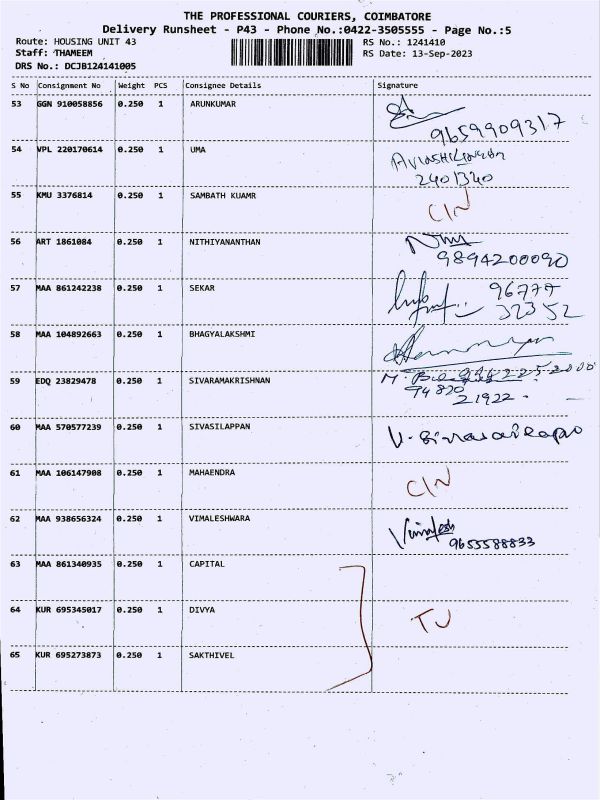 THE PROFESSIONAL COURIERS, COIMBATORE
Delivery Runsheet - P43 - Phone No.:0422-3505555 - Page No.:5
Route: HOUSING UNIT 43 RS No.: 1241410
Staff: THAMEEM RS Date: 13-Sep-2023
DRS No.: DCJB124141005
S No Consignment No Weight PCS Consignee Details Signature
53 GGN 910058856 0.250 1 ARUNKUMAR
9659909317
54 VPL 220170614 0.250 1 UMA
2401340
55 KMU 3376814 0.250 1 SAMBATH KUAMR C/N
56 ART 1861084 0.250 1 NITHIYANANTHAN
9894200090
57 MAA 861242238 0.250 1 SEKAR 96777
32352
58 MAA 104892663 0.250 1 BHAGYALAKSHMI
59 EDQ 23829478 0.250 1 SIVARAMAKRISHNAN
94820
21922
60 MAA 570577239 0.250 1 SIVASILAPPAN
61 MAA 106147908 0.250 1 MAHAENDRA C/N
62 MAA 938656324 0.250 1 VIMALESHWARA
9655588833
63 MAA 861340935 0.250 1 CAPITAL
64 KUR 695345017 0.250 1 DIVYA TU
65 KUR 695273873 0.250 1 SAKTHIVEL